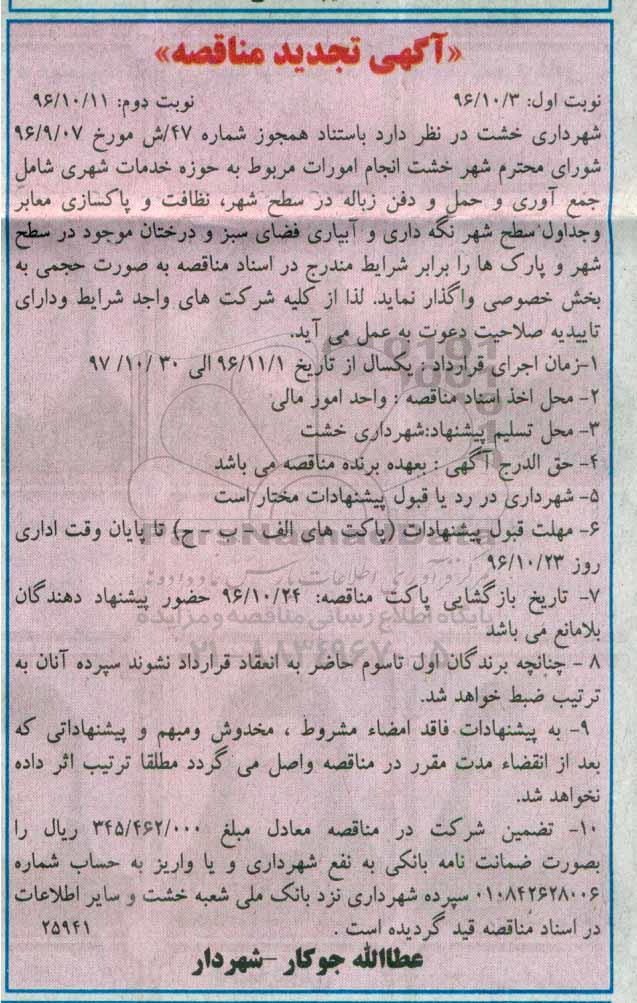 «آگهی تجدید مناقصه»
نوبت اول: ۹۶/۱۰/۳ نوبت دوم: ۹۶/۱۰/۱۱
شهرداری خشت در نظر دارد باستناد همجوز شماره ۴۷/ش مورخ ۹۶/۹/۰۷
شورای محترم شهر خشت انجام امورات مربوط به حوزه خدمات شهری شامل
جمع آوری و حمل و دفن زباله در سطح شهر، نظافت و پاکسازی معابر
وجداول سطح شهر نگه داری و آبیاری فضای سبز و درختان موجود در سطح
شهر و پارک ها را برابر شرایط مندرج در اسناد مناقصه به صورت حجمی به
بخش خصوصی واگذار نماید. لذا از کلیه شرکت های واجد شرایط ودارای
تاییدیه صلاحیت دعوت به عمل می آید.
۱-زمان اجرای قرارداد : یکسال از تاریخ ۹۶/۱۱/۱ الی ۳۰ /۱۰/ ۹۷
۲- محل اخذ اسناد مناقصه : واحد امور مالی
۳- محل تسلیم پیشنهاد:شهرداری خشت
۴- حق الدرج آگهی : بعهده برنده مناقصه می باشد
۵- شهرداری در رد یا قبول پیشنهادات مختار است
۶- مهلت قبول پیشنهادات (پاکت های الف - ب - ح) تا پایان وقت اداری
روز ۹۶/۱۰/۲۳
۷- تاریخ بازگشایی پاکت مناقصه: ۹۶/۱۰/۲۴ حضور پیشنهاد دهندگان
بلامانع می باشد
۸ - چنانچه برندگان اول تاسوم حاضر به انعقاد قرارداد نشوند سپرده آنان به
ترتیب ضبط خواهد شد.
۹- به پیشنهادات فاقد امضاء مشروط ، مخدوش ومبهم و پیشنهاداتی که
بعد از انقضاء مدت مقرر در مناقصه واصل می گردد مطلقا ترتیب اثر داده
نخواهد شد.
۱۰- تضمین شرکت در مناقصه معادل مبلغ ۳۴۵/۴۶۲/۰۰۰ ریال را
بصورت ضمانت نامه بانکی به نفع شهرداری و یا واریز به حساب شماره
۰۱۰۸۴۲۶۲۸۰۰۶ سپرده شهرداری نزد بانک ملی شعبه خشت و سایر اطلاعات
در اسناد مناقصه قید گردیده است . ۲۵۹۴۱
عطاالله جوکار -شهردار
ParsNamadData
پایگاه اطلاع رسانی مناقصه و مزایده
۰۲۱-۸۸۳۴۹۶۷۰-۵